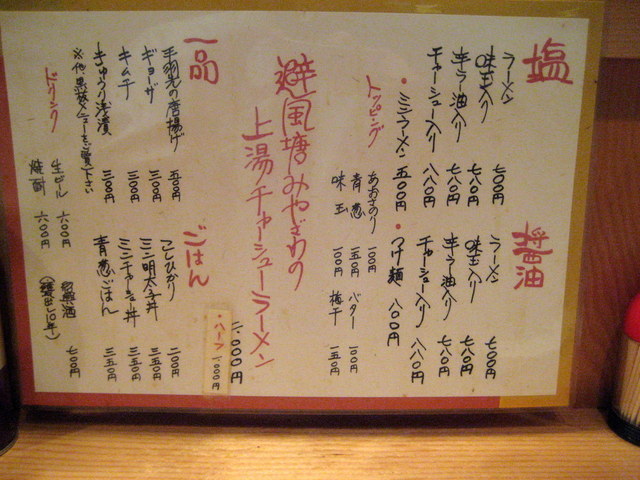 塩
ラーメン 七〇〇円
味玉入り 七八〇円
辛ラー油入り 七八〇円
チャーシュー入り 八八〇円
・ミニラーメン 五〇〇円
醤油
ラーメン 七〇〇円
味玉入り 七八〇円
辛ラー油入り 七八〇円
チャーシュー入り 八八〇円
・つけ麺 八〇〇円
トッピング
あおさのり 一〇〇円
青葱 一五〇円
味玉 一〇〇円
バター 一〇〇円
梅干 一五〇円
避風塘みやざわの
上湯チャーシューラーメン
二、〇〇〇円
・ハーフ 1,000円
一品
手羽先の唐揚げ 五〇〇円
ギョーザ 三〇〇円
キムチ 三〇〇円
きゅうり浅漬 三〇〇円
※他黒板メニューをご覧下さい
ごはん
こしひかり 二〇〇円
ミニ明太子丼 三五〇円
ミニチャーシュー丼 三五〇円
青葱ごはん 三五〇円
ドリンク
生ビール 六〇〇円
焼酎 六〇〇円
紹興酒 七〇〇円
(甕出し10年)